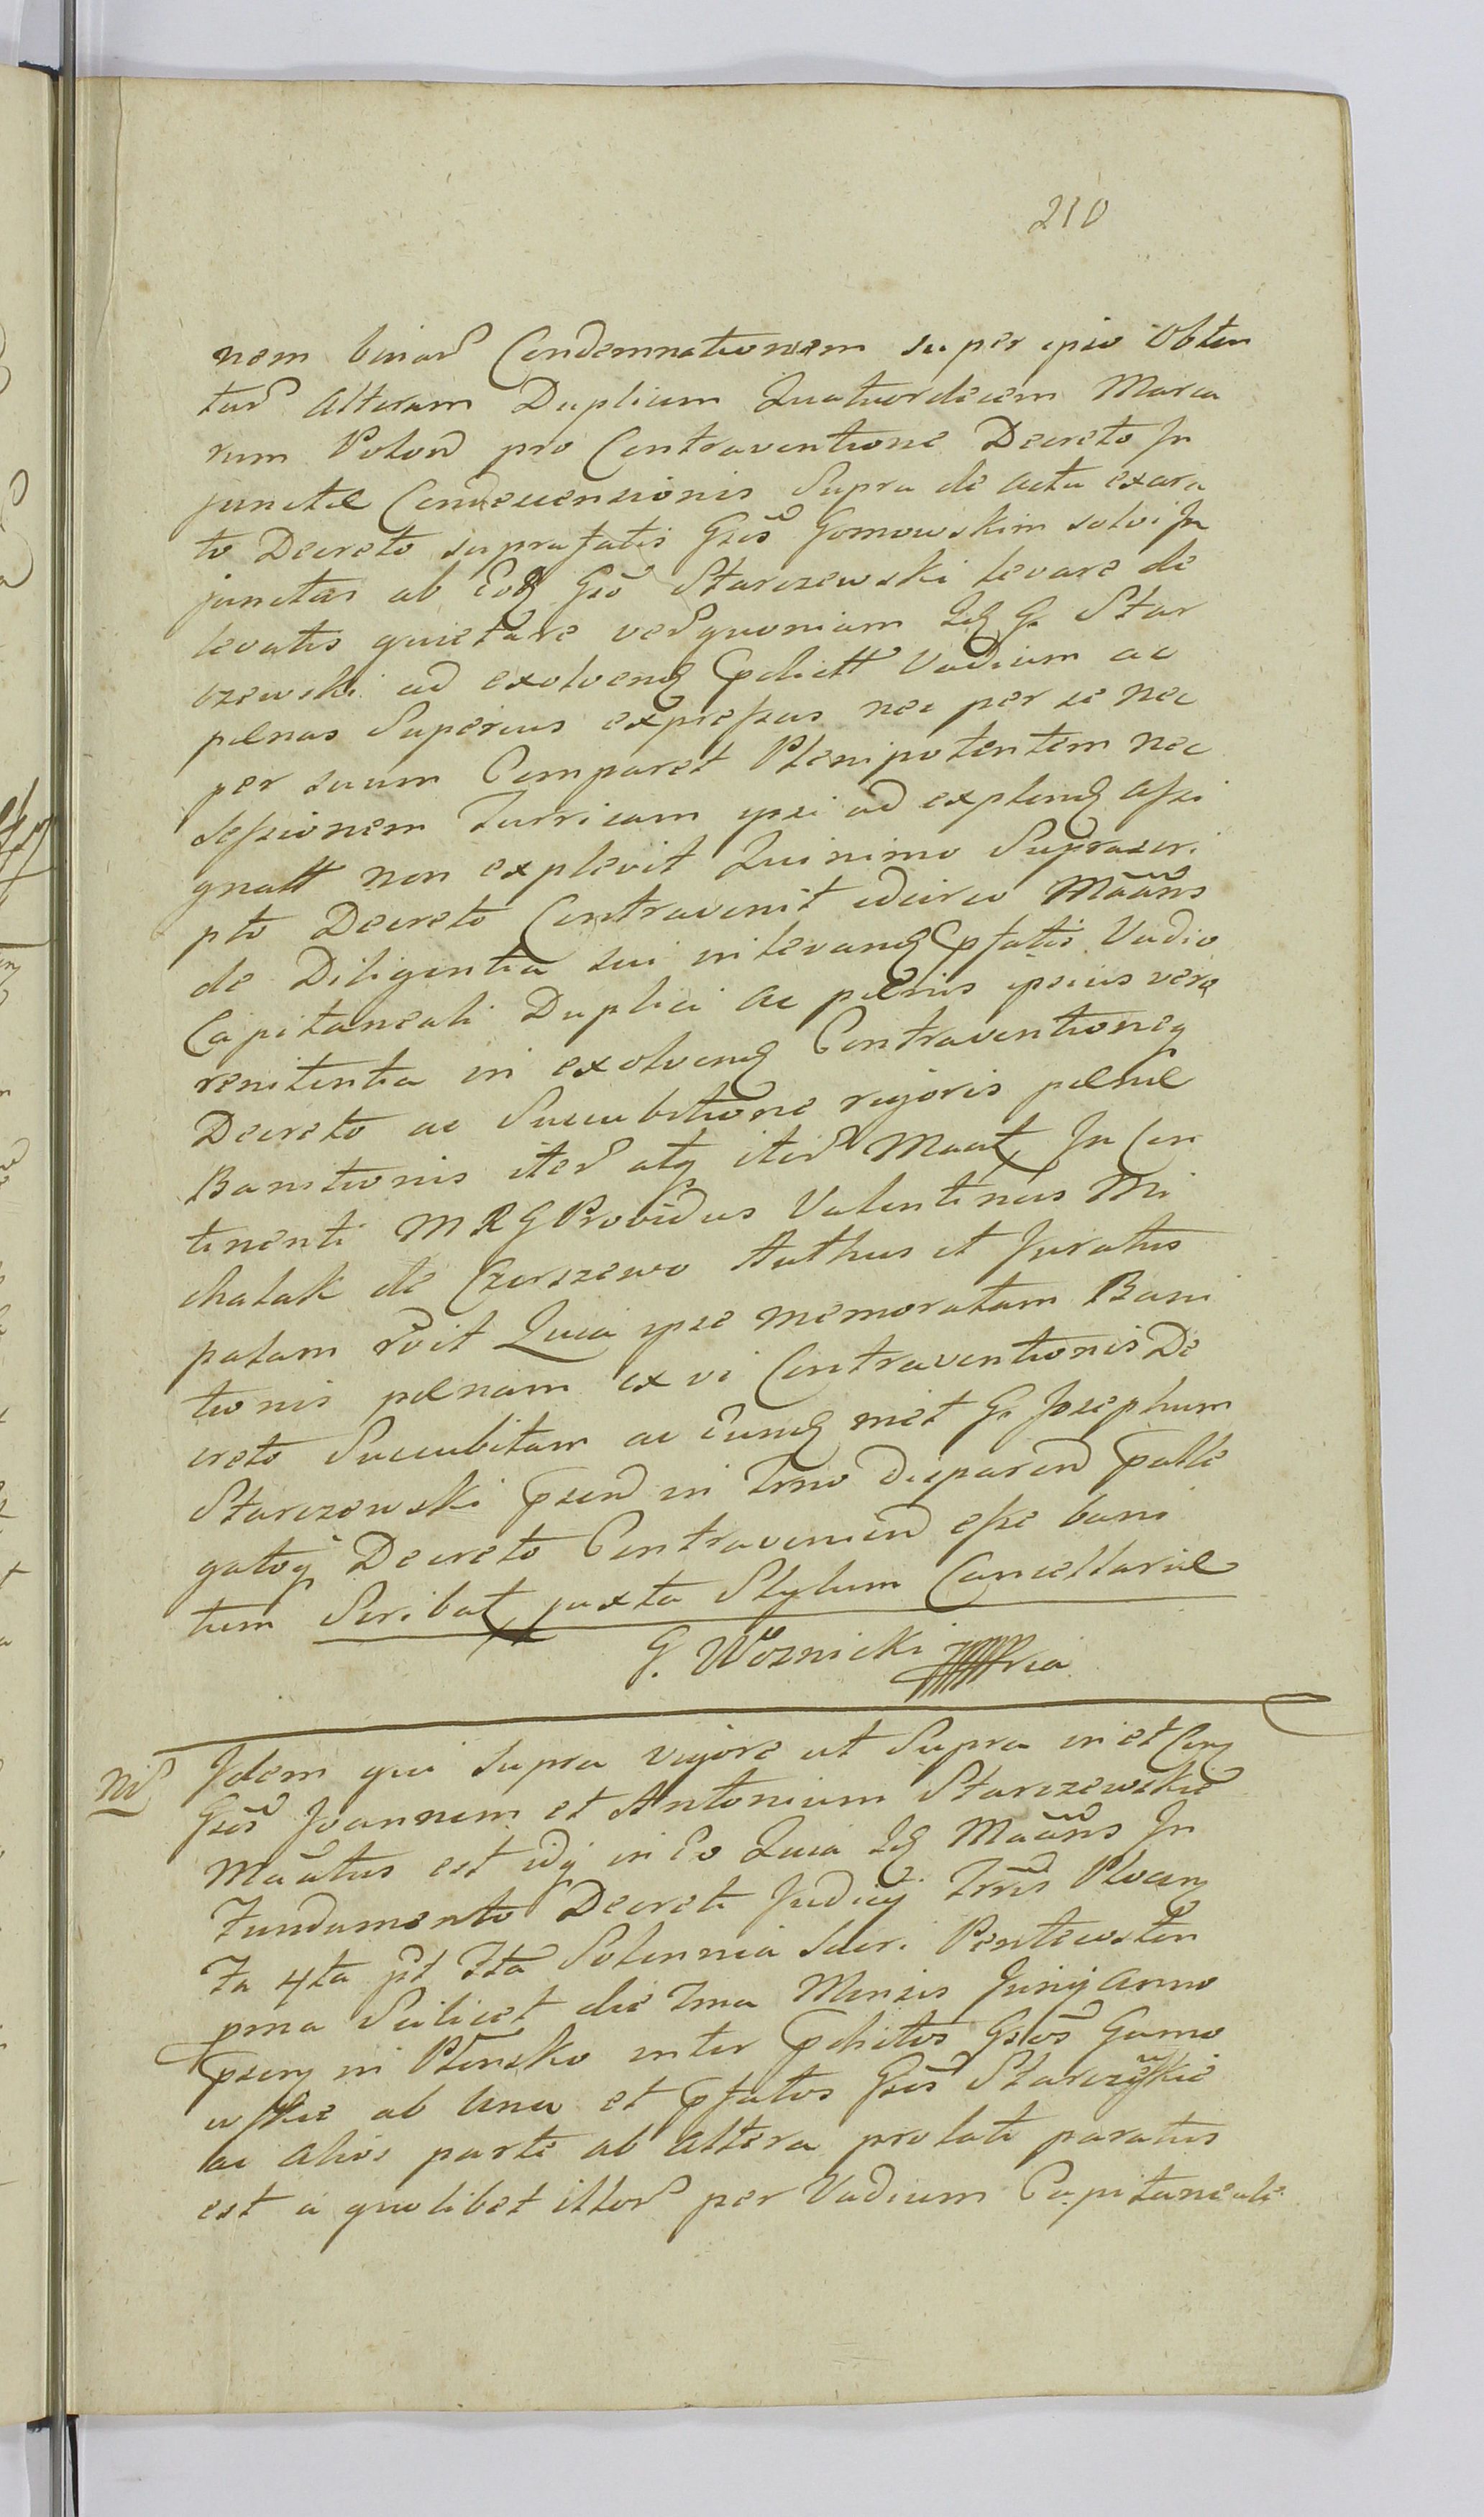 210
nem binar Condemnationem super ipso Obten
tar Alteram Duplicem Quatuordecim Marca
rum Polon pro Contraventione Decreto In
junctæ Condescensionis Supra de actu exara
to Decreto suprafatis Gsis Gomowskim solvi In
junctas ab Eod Gso Starczewski levare de
levatis quietare ver quoniam Id G. Star
czewski ad exolvend pdictt Vadium ac
pænas Superius expressas nec per se nec
per suum Comparet Plenipotentem nec
Sessionem Turricam ipsi ad explend assi
gnatt non explevit Quinimo Suprascri
pto Decreto Contravenit idcirco Maans
de Diligentia sui in levand pfatis Vadio
Capitaneali Duplici ac pænis ipsius vero
renitentia in exolvend Contraventioneq
Decreto ac Succubitione rigoris pænæ
Banitionis iter atq iter Maat In Con
tinenti M R G Providus Valentinus Mi
chalak de Czerszewo Authus et Juratus
palam rvit Quia ipse memoratam Bani
tionis pænam ex vi Contraventionis De
creto Succubitam ac Eund met G. Josephum
Starczewski psend in Trno disparend palle
gatoq Decreto Contravenien esse bani
tum Scribat juxta Stylum Cancellariæ
G. Woznicki
Nis Idem qui supra vigore ut Supra in et Con
Gsos Joannem et Antonium Starczewskie
Maatus est idq in Eo Quia Id Maans In
Fundamento Decreti Judicij Trris Plocen
Fa 4ta pt Fta Solennia Sacri Pentecosten
pma Scilicet die 7ma Mensis Junij Anno
psen in Plonsko inter pdictos Gsos Gomo
wskie ab una et pfatos Gsos Starczewskie
ac alios parte ab altera prolati paratus
est a quolibet illor per Vadium Capitaneale